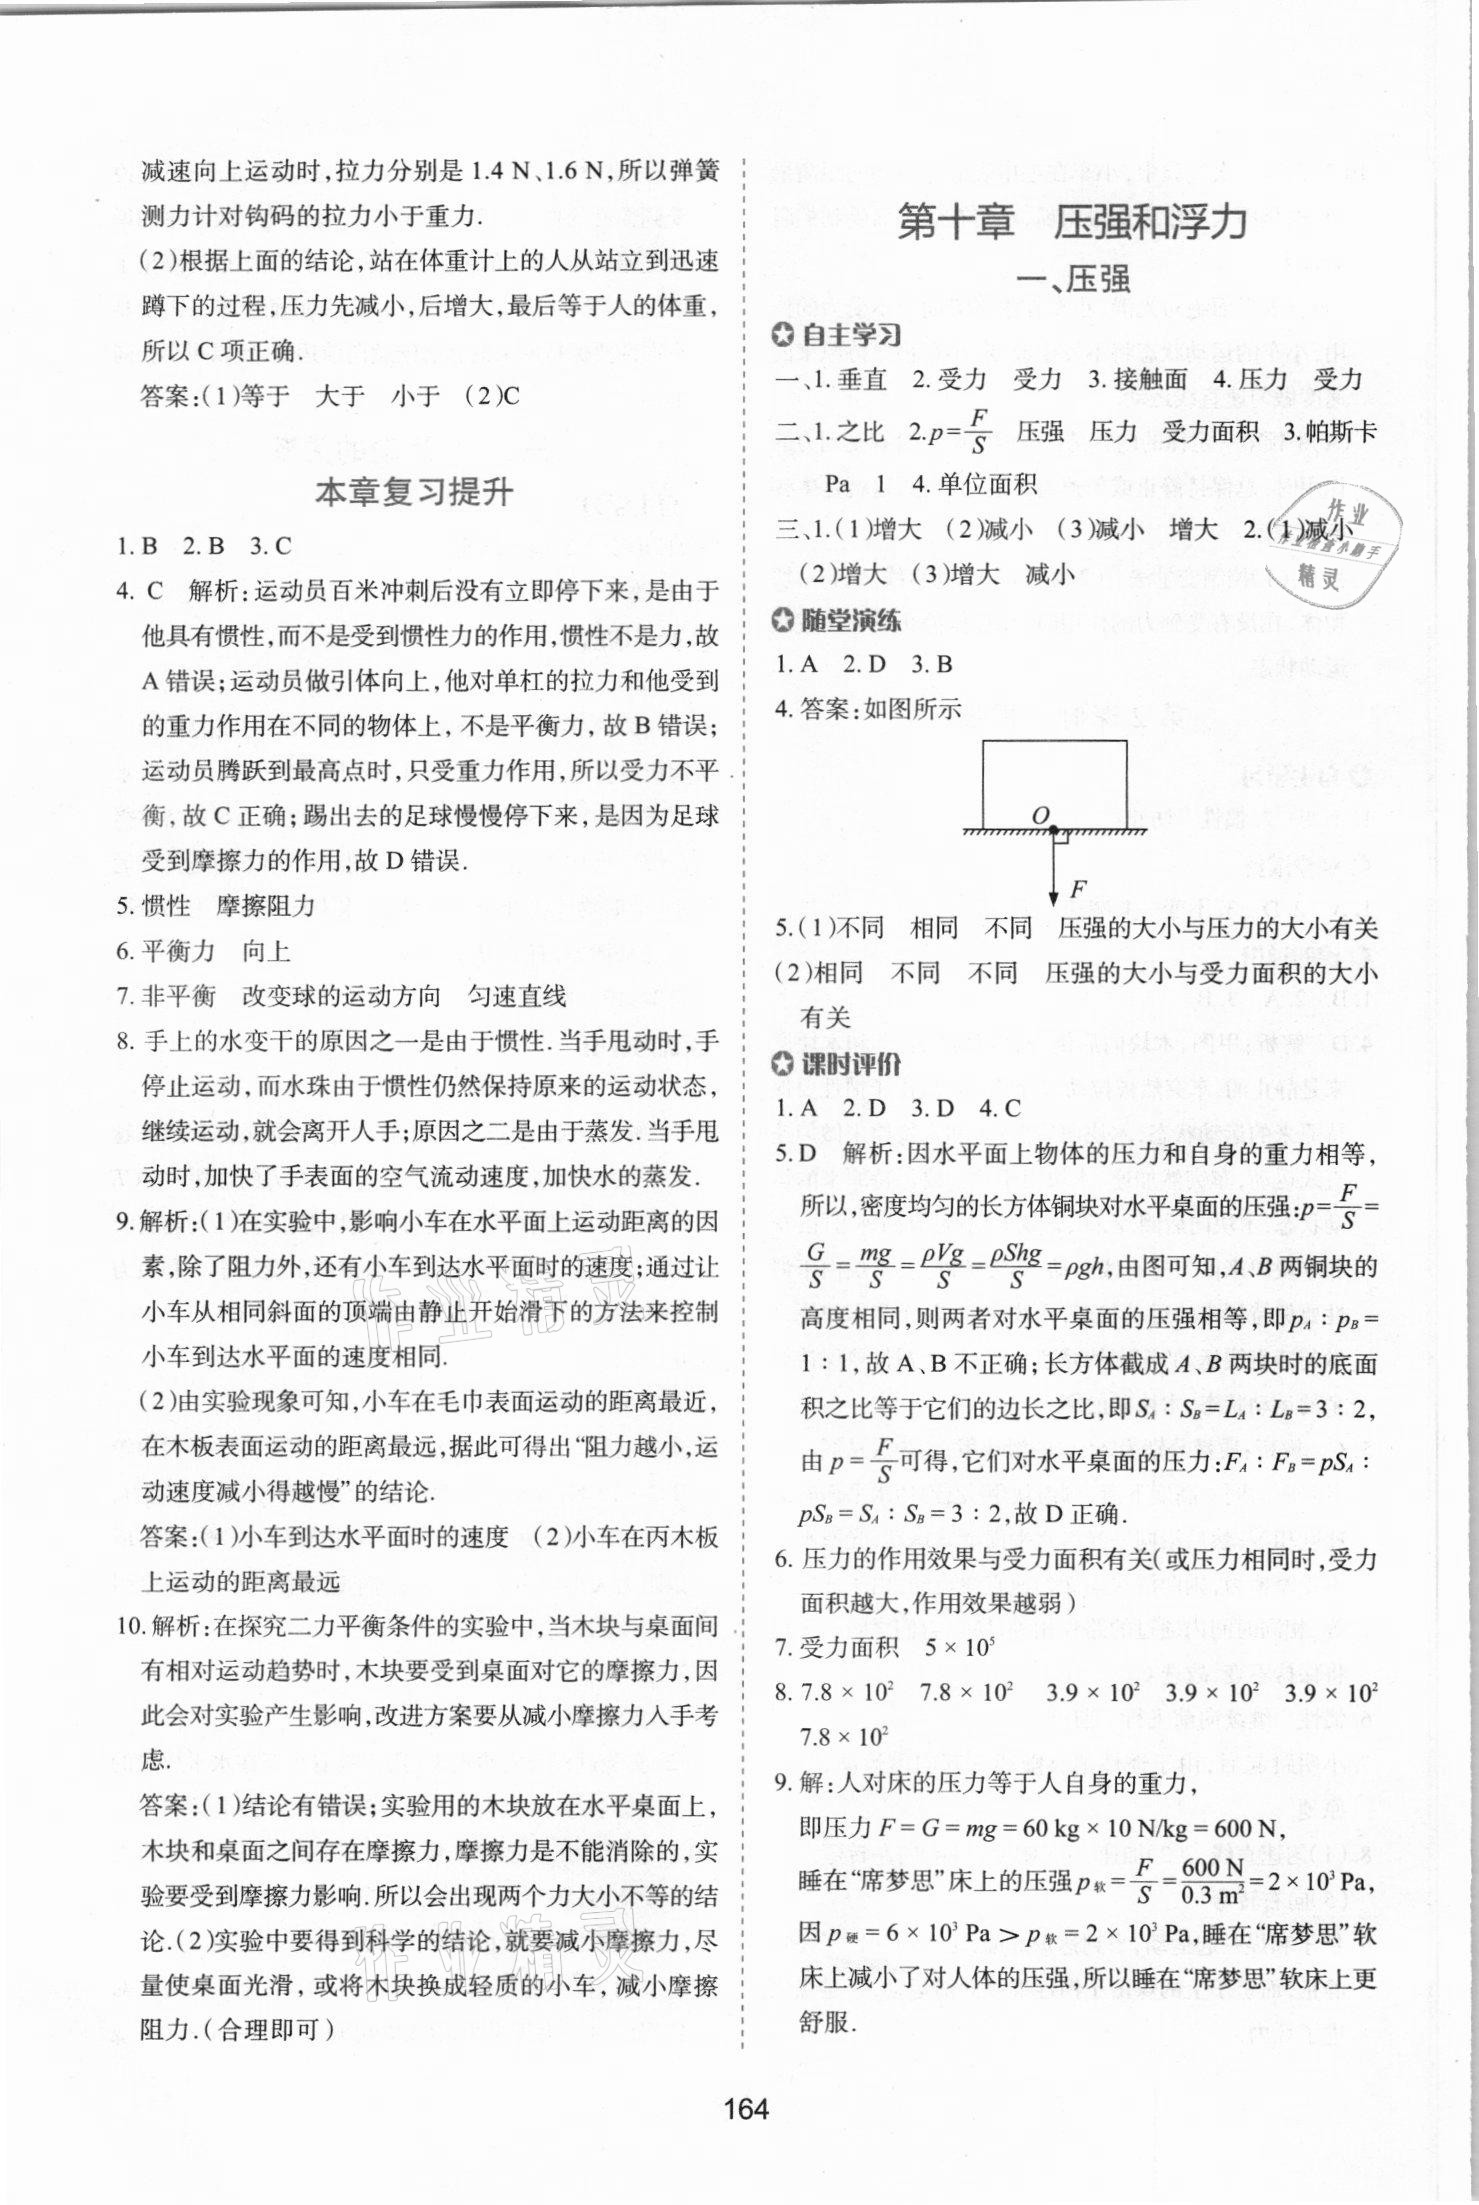 减速向上运动时,拉力分别是 1.4 N、1.6 N,所以弹簧
测力计对钩码的拉力小于重力.
(2)根据上面的结论,站在体重计上的人从站立到迅速
蹲下的过程,压力先减小,后增大,最后等于人的体重,
所以 C 项正确.
答案:(1)等于 大于 小于 (2)C
本章复习提升
1. B 2. B 3. C
4. C 解析:运动员百米冲刺后没有立即停下来,是由于
他具有惯性,而不是受到惯性力的作用,惯性不是力,故
A 错误;运动员做引体向上,他对单杠的拉力和他受到
的重力作用在不同的物体上,不是平衡力,故 B 错误;
运动员腾跃到最高点时,只受重力作用,所以受力不平
衡,故 C 正确;踢出去的足球慢慢停下来,是因为足球
受到摩擦力的作用,故 D 错误.
5. 惯性 摩擦阻力
6. 平衡力 向上
7. 非平衡 改变球的运动方向 匀速直线
8. 手上的水变干的原因之一是由于惯性.当手甩动时,手
停止运动,而水珠由于惯性仍然保持原来的运动状态,
继续运动,就会离开人手;原因之二是由于蒸发.当手甩
动时,加快了手表面的空气流动速度,加快水的蒸发.
9. 解析:(1)在实验中,影响小车在水平面上运动距离的因
素,除了阻力外,还有小车到达水平面时的速度;通过让
小车从相同斜面的顶端由静止开始滑下的方法来控制
小车到达水平面的速度相同.
(2)由实验现象可知,小车在毛巾表面运动的距离最近,
在木板表面运动的距离最远,据此可得出“阻力越小,运
动速度减小得越慢”的结论.
答案:(1)小车到达水平面时的速度 (2)小车在丙木板
上运动的距离最远
10. 解析:在探究二力平衡条件的实验中,当木块与桌面间
有相对运动趋势时,木块要受到桌面对它的摩擦力,因
此会对实验产生影响,改进方案要从减小摩擦力入手考
虑.
答案:(1)结论有错误;实验用的木块放在水平桌面上,
木块和桌面之间存在摩擦力,摩擦力是不能消除的,实
验要受到摩擦力影响.所以会出现两个力大小不等的结
论.(2)实验中要得到科学的结论,就要减小摩擦力,尽
量使桌面光滑,或将木块换成轻质的小车,减小摩擦
阻力.(合理即可)
第十章 压强和浮力
一、压强
自主学习
一、1. 垂直 2. 受力 受力 3. 接触面 4. 压力 受力
二、1. 之比 2. p=F/S 压强 压力 受力面积 3. 帕斯卡
Pa 1 4. 单位面积
三、1.(1)增大 (2)减小 (3)减小 增大 2.(1)减小
(2)增大 (3)增大 减小
随堂演练
1. A 2. D 3. B
4. 答案:如图所示
O
F
5.(1)不同 相同 不同 压强的大小与压力的大小有关
(2)相同 不同 不同 压强的大小与受力面积的大小
有关
课时评价
1. A 2. D 3. D 4. C
5. D 解析:因水平面上物体的压力和自身的重力相等,
所以,密度均匀的长方体铜块对水平桌面的压强:p=F/S=
G/S=mg/S=ρVg/S=ρShg/S=ρgh,由图可知,A、B 两铜块的
高度相同,则两者对水平桌面的压强相等,即 pA∶pB=
1∶1,故 A、B 不正确;长方体截成 A、B 两块时的底面
积之比等于它们的边长之比,即 SA∶SB=LA∶LB=3∶2,
由 p=F/S可得,它们对水平桌面的压力:FA∶FB=pSA∶
pSB=SA∶SB=3∶2,故 D 正确.
6. 压力的作用效果与受力面积有关(或压力相同时,受力
面积越大,作用效果越弱)
7. 受力面积 5×10⁵
8. 7.8×10² 7.8×10² 3.9×10² 3.9×10² 3.9×10²
7.8×10²
9. 解:人对床的压力等于人自身的重力,
即压力 F=G=mg=60 kg×10 N/kg=600 N,
睡在“席梦思”床上的压强 p软=F/S=600 N/0.3 m²=2×10³ Pa,
因 p硬=6×10³ Pa>p软=2×10³ Pa,睡在“席梦思”软
床上减小了对人体的压强,所以睡在“席梦思”软床上更
舒服.
作业
作业检查小助手
精灵
作业精灵
作业精灵
164